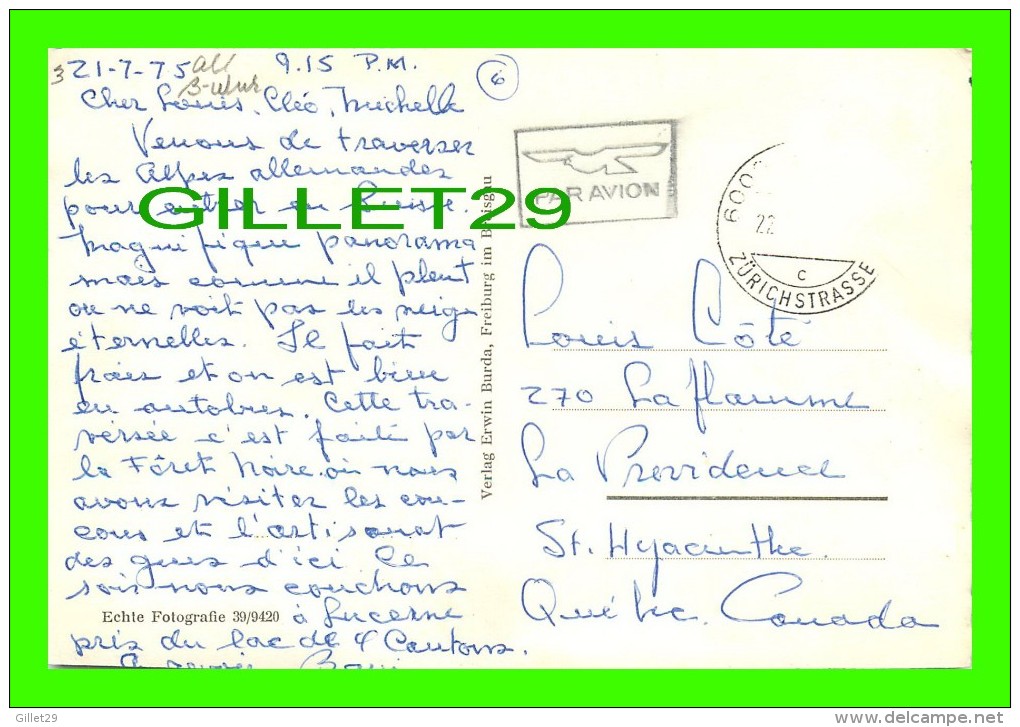 3 21-7-75 9.15 P.M.
all
6
Cher Louis, Cléo, Michelle
Venons de traverser
les Alpes allemandes
pour entrer en Suisse.
Magnifique panorama
mais comme il pleut
on ne voit pas les neiges
éternelles. Il fait
frais et on est bien
en autobus. Cette tra-
versée c'est faite par
la Fôret Noire où nous
avons visiter les cou-
cous et l'artisanat
des gens d'ici Ce
soir nous couchons
à Lucerne
près du lac de 4 Cantons.
A revoir
Echte Fotografie 39/9420
Verlag Erwin Burda, Freiburg im Breisgau
PAR AVION
600
22
C
ZÜRICHSTRASSE
Louis Côté
270 Laflamme
La Providence
St. Hyacinthe
Québec. Canada
GILLET29
Gillet29
delcampe.net